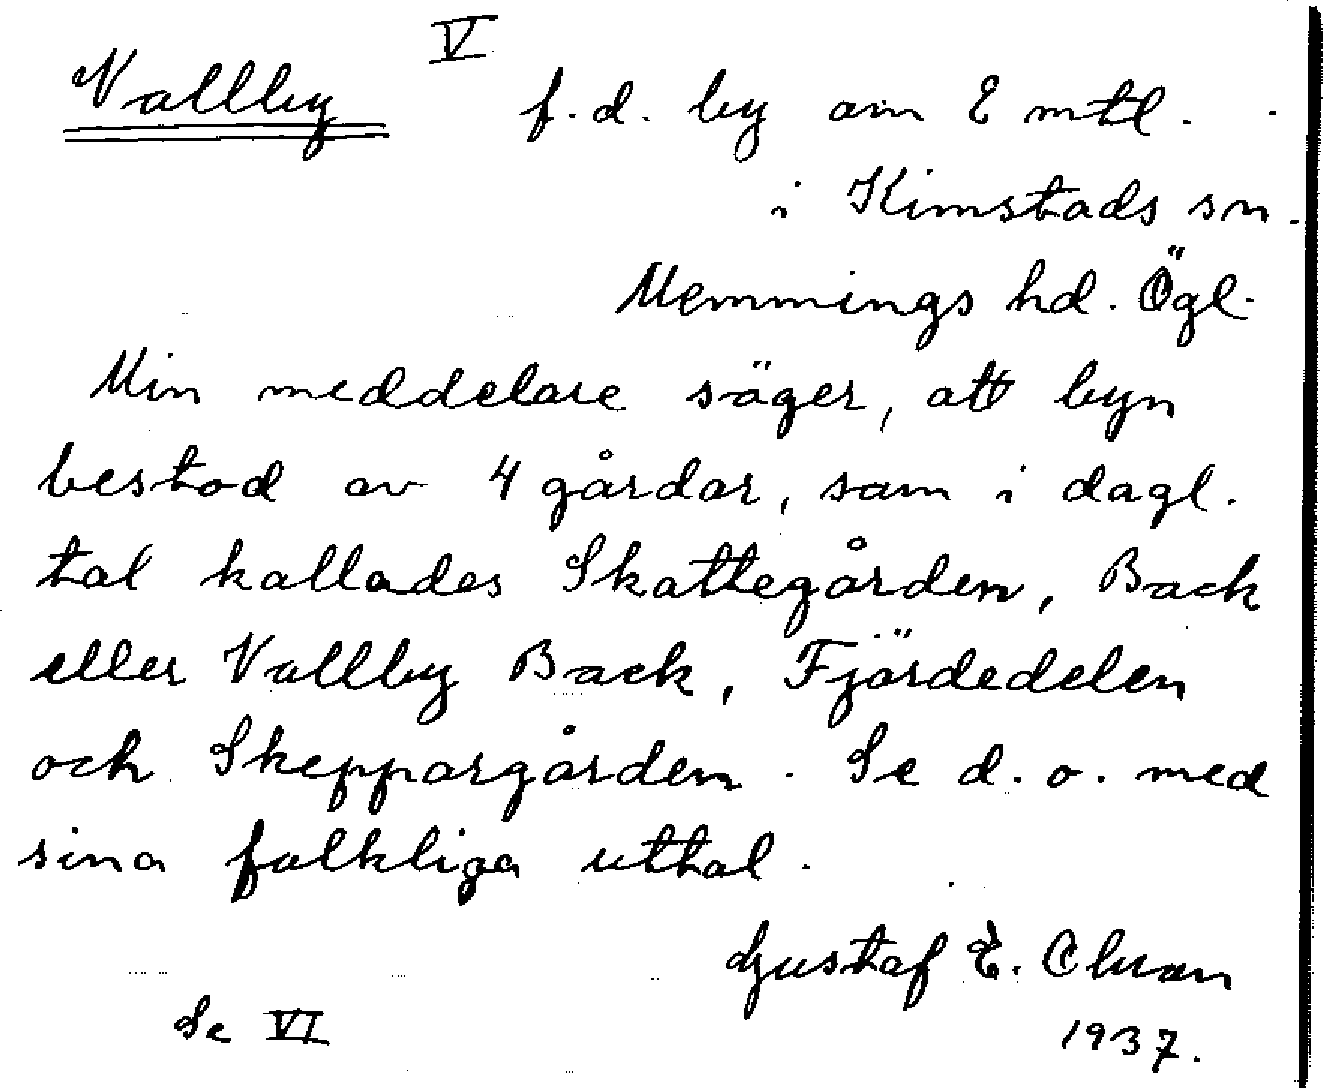 Vallby V f.d. by om 2 mtl.
i Kimstads sn.
Memmings hd. Ögl.
Min meddelare säger, att byn
bestod av 4 gårdar, som i dagl.
tal kallades Skattegården, Back
eller Vallby Back, Fjärdedelen
och Skeppargården. Se d.o. med
sina folkliga uttal.
Gustaf E.
Se VI 1937.